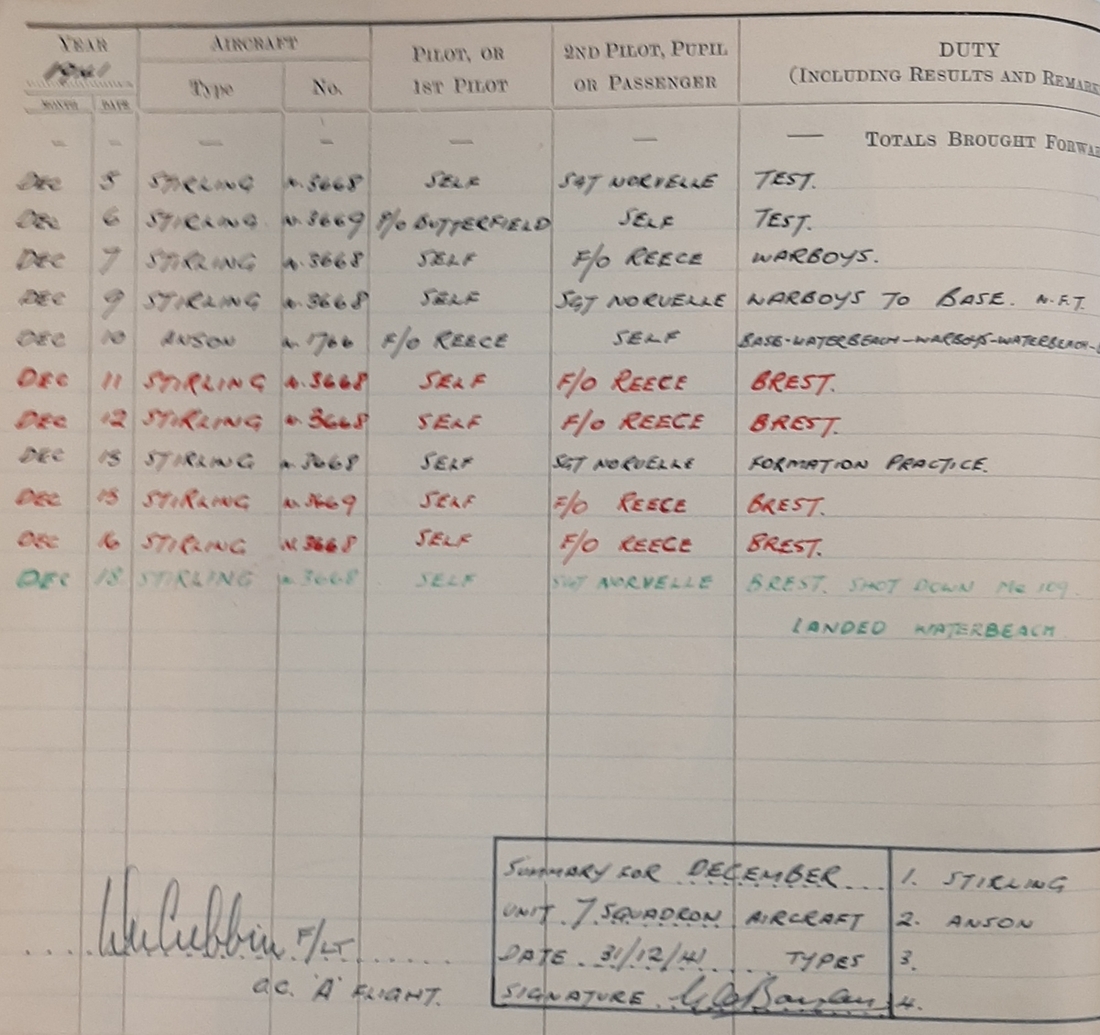 YEAR AIRCRAFT PILOT, OR 2ND PILOT, PUPIL DUTY
1941 Type No. 1ST PILOT OR PASSENGER (INCLUDING RESULTS AND REMARK
MONTH DATE
— — — — — — — TOTALS BROUGHT FORWA
DEC 5 STIRLING N.3668 SELF SGT NORVELLE TEST.
DEC 6 STIRLING N.3669 P/O BUTTERFIELD SELF TEST.
DEC 7 STIRLING N.3668 SELF F/O REECE WARBOYS.
DEC 9 STIRLING N.3668 SELF SGT NORVELLE WARBOYS TO BASE. N.F.T.
DEC 10 ANSON N.1766 F/O REECE SELF BASE-WATERBEACH-WARBOYS-WATERBEACH-
DEC 11 STIRLING N.3668 SELF F/O REECE BREST.
DEC 12 STIRLING N.3668 SELF F/O REECE BREST.
DEC STIRLING N.3668 SELF SGT NORVELLE FORMATION PRACTICE.
DEC STIRLING N.3669 SELF F/O REECE BREST.
DEC 16 STIRLING N.3668 SELF F/O REECE BREST.
DEC 18 STIRLING N.3668 SELF SGT NORVELLE BREST. SHOT DOWN Me 109.
LANDED WATERBEACH
SUMMARY FOR DECEMBER 1. STIRLING
UNIT. 7 SQUADRON AIRCRAFT 2. ANSON
F/LT DATE. 31/12/41 TYPES 3.
O.C. 'A' FLIGHT. SIGNATURE 4.